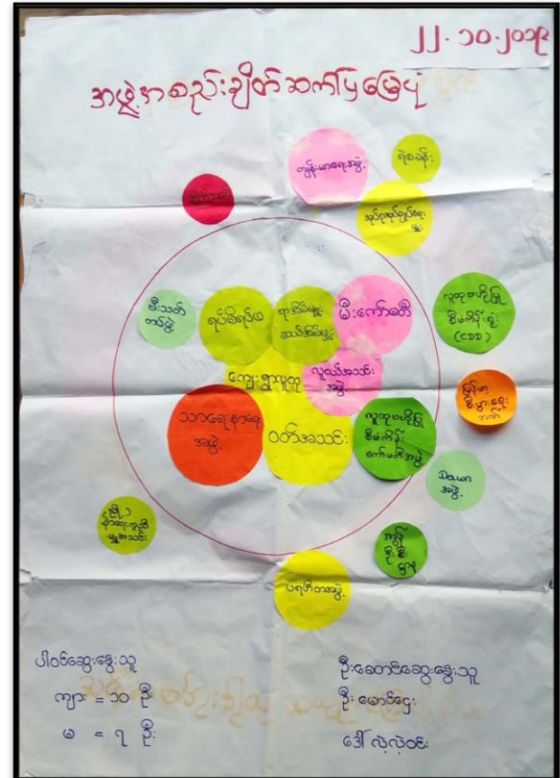 ၂၂-၁၀-၂၀၁၉
အဖွဲ့အစည်းချိတ်ဆက်ပုံမြေပုံ
ကျန်းမာရေးအဖွဲ့
ရဲစခန်း
အုပ်ချုပ်ရေးမှူး
မီးသတ်
တပ်ဖွဲ့
ရပ်မိရပ်ဖ
ရာအိမ်မှူး
ဆယ်အိမ်မှူး
မီးကော်မတီ
လူထုဗဟိုပြု
စီမံကိန်းရုံး
(CDD)
ကျေးရွာလူထု
လူငယ်အသင်း
အဖွဲ့
မြန်မာ
စီးပွားရေး
ဘဏ်
သာရေးနာရေး
အဖွဲ့
ဝတ်အသင်း
လူထုဗဟိုပြု
စီမံကိန်း
ကော်မတီအဖွဲ့
အဖွဲ့
ဦးစီး
ဌာန
ပရဟိတအဖွဲ့
ပါဝင်ဆွေးနွေးသူ
ကျား = ၁၀ ဦး
မ = ၇ ဦး
ဦးဆောင်ဆွေးနွေးသူ
ဦးမောင်ငွေး
ဒေါ်လဲ့လဲ့ဝင်း